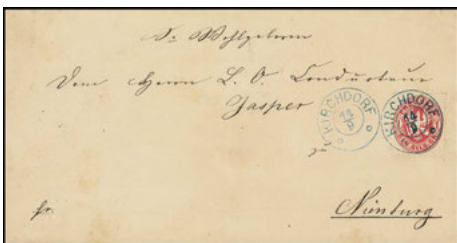 Sr Wohlgeboren
Dem Herrn L. O. Conducteur
Jasper
KIRCHDORF
14
9
KIRCHDORF
14
9
zu
fr.
Nienburg